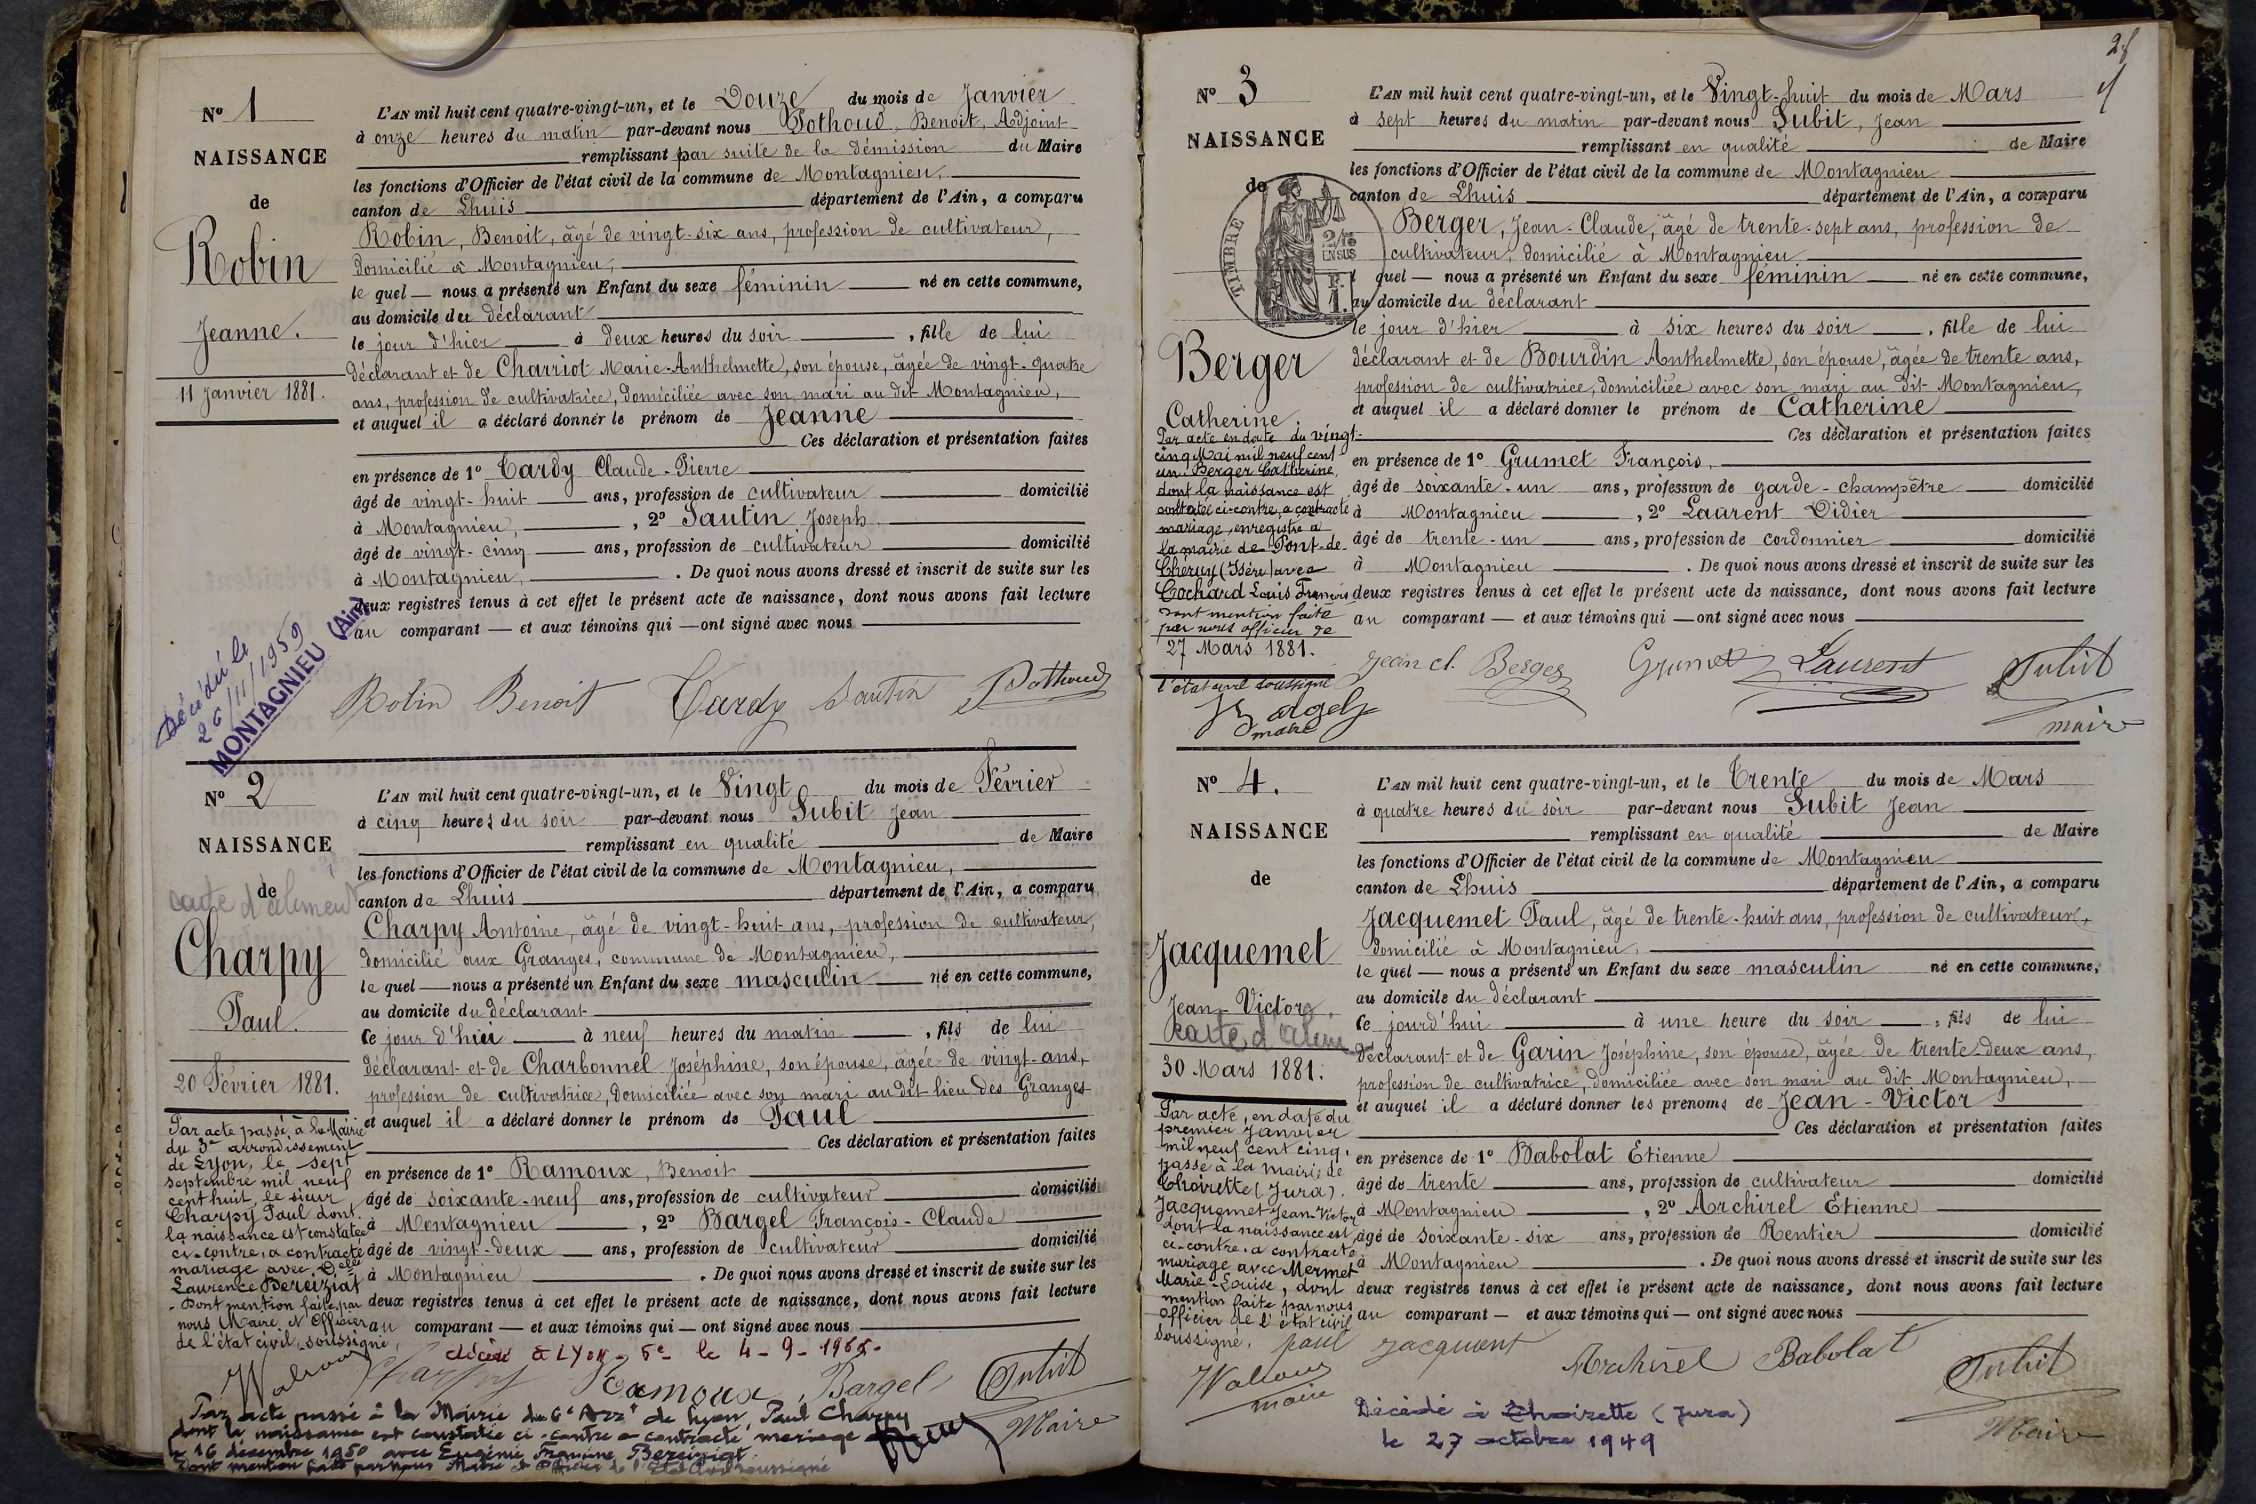 Nº 1
NAISSANCE
de
Robin
Jeanne.
11 Janvier 1881.
L'AN mil huit cent quatre-vingt-un, et le Douze du mois de Janvier
à onze heures du matin par-devant nous Pothoud, Benoit, Adjoint
remplissant par suite de la démission du Maire
les fonctions d'Officier de l'état civil de la commune de Montagnieu,
canton de Lhuis département de l'Ain, a comparu
Robin, Benoit, âgé de vingt-six ans, profession de cultivateur,
domicilié à Montagnieu,
le quel nous a présenté un Enfant du sexe féminin né en cette commune,
au domicile du déclarant
le jour d'hier à deux heures du soir, fille de lui
déclarant et de Chairiot Marie-Anthelmette, son épouse, âgée de vingt-quatre
ans, profession de cultivatrice, domiciliée avec son mari au dit Montagnieu,
et auquel il a déclaré donner le prénom de Jeanne
Ces déclaration et présentation faites
en présence de 1º Tardy Claude-Pierre
âgé de vingt-huit ans, profession de cultivateur domicilié
à Montagnieu, , 2º Sautin Joseph
âgé de vingt-cinq ans, profession de cultivateur domicilié
à Montagnieu, . De quoi nous avons dressé et inscrit de suite sur les
deux registres tenus à cet effet le présent acte de naissance, dont nous avons fait lecture
au comparant et aux témoins qui ont signé avec nous
Décédé le
26/11/1959
MONTAGNIEU (Ain)
Robin Benoit Tardy Sautin Pothoud
Nº 2
NAISSANCE
de
carte d'aliment
Charpy
Paul.
20 Février 1881.
L'AN mil huit cent quatre-vingt-un, et le Vingt du mois de Février
à cinq heures du soir par-devant nous Subit Jean
remplissant en qualité de Maire
les fonctions d'Officier de l'état civil de la commune de Montagnieu,
canton de Lhuis département de l'Ain, a comparu
Charpy Antoine, âgé de vingt-huit ans, profession de cultivateur,
domicilié aux Granges, commune de Montagnieu,
le quel nous a présenté un Enfant du sexe masculin né en cette commune,
au domicile du déclarant
le jour d'hier à neuf heures du matin, fils de lui
déclarant et de Charbonnel Joséphine, son épouse, âgée de vingt ans,
profession de cultivatrice, domiciliée avec son mari au dit lieu des Granges
et auquel il a déclaré donner le prénom de Paul
Ces déclaration et présentation faites
en présence de 1º Ramoux, Benoit
âgé de soixante-neuf ans, profession de cultivateur domicilié
à Montagnieu , 2º Bargel François-Claude
âgé de vingt-deux ans, profession de cultivateur domicilié
à Montagnieu . De quoi nous avons dressé et inscrit de suite sur les
deux registres tenus à cet effet le présent acte de naissance, dont nous avons fait lecture
au comparant et aux témoins qui ont signé avec nous
Par acte passé à la Mairie
du 3e arrondissement
de Lyon, le sept
septembre mil neuf
cent huit, le sieur
Charpy Paul dont
la naissance est constatée
ci-contre, a contracté
mariage avec Delle
Laurence Bereiziat
Dont mention faite par
nous Maire et Officier
de l'état civil, soussigné,
décédé à LYON-5e le 4-9-1966-
Charpy Ramoux Bargel Subit
Maire
Par acte passé à la Mairie du 6e Arrt de Lyon, Paul Charpy
dont la naissance est constatée ci-contre a contracté mariage
le 16 décembre 1950 avec Eugénie Francine Bereiziat
Dont mention faite par nous Maire et Officier de l'Etat Civil soussigné
28
Nº 3
NAISSANCE
de
TIMBRE
2/10
EN SUS
Berger
Catherine.
Par acte en date du vingt-
cinq Mai mil neuf cent
un Berger Catherine
dont la naissance est
constatée ci-contre, a contracté
mariage, enregistré à
la mairie de Pont-de-
Chéruy (Isère) avec
Cochard Louis François
dont mention faite
par nous officier de
27 Mars 1881.
l'état civil soussigné
Bargel
maire
L'AN mil huit cent quatre-vingt-un, et le Vingt-huit du mois de Mars
à sept heures du matin par-devant nous Subit, Jean
remplissant en qualité de Maire
les fonctions d'Officier de l'état civil de la commune de Montagnieu
canton de Lhuis département de l'Ain, a comparu
Berger, Jean-Claude, âgé de trente-sept ans, profession de
cultivateur, domicilié à Montagnieu
quel nous a présenté un Enfant du sexe féminin né en cette commune,
au domicile du déclarant
le jour d'hier à six heures du soir, fille de lui
déclarant et de Bourdin Anthelmette, son épouse, âgée de trente ans,
profession de cultivatrice, domiciliée avec son mari au dit Montagnieu,
et auquel il a déclaré donner le prénom de Catherine
Ces déclaration et présentation faites
en présence de 1º Grumet François,
âgé de soixante-un ans, profession de garde-champêtre domicilié
à Montagnieu , 2º Laurent Didier
âgé de trente-un ans, profession de cordonnier domicilié
à Montagnieu . De quoi nous avons dressé et inscrit de suite sur les
deux registres tenus à cet effet le présent acte de naissance, dont nous avons fait lecture
au comparant et aux témoins qui ont signé avec nous
Jean cl. Berger Grumet Laurent Subit
maire
Nº 4.
NAISSANCE
de
Jacquemet
Jean-Victor.
Carte d'alim
30 Mars 1881.
L'AN mil huit cent quatre-vingt-un, et le Trente du mois de Mars
à quatre heures du soir par-devant nous Subit Jean
remplissant en qualité de Maire
les fonctions d'Officier de l'état civil de la commune de Montagnieu
canton de Lhuis département de l'Ain, a comparu
Jacquemet Paul, âgé de trente-huit ans, profession de cultivateur,
domicilié à Montagnieu,
le quel nous a présenté un Enfant du sexe masculin né en cette commune,
au domicile du déclarant
le jourd'hui à une heure du soir, fils de lui
déclarant et de Garin Joséphine, son épouse, âgée de trente-deux ans,
profession de cultivatrice, domiciliée avec son mari au dit Montagnieu,
et auquel il a déclaré donner les prenoms de Jean-Victor
Ces déclaration et présentation faites
en présence de 1º Babolat Etienne
âgé de trente ans, profession de cultivateur domicilié
à Montagnieu , 2º Archirel Etienne
âgé de soixante-six ans, profession de Rentier domicilié
à Montagnieu . De quoi nous avons dressé et inscrit de suite sur les
deux registres tenus à cet effet le présent acte de naissance, dont nous avons fait lecture
au comparant et aux témoins qui ont signé avec nous
Par acte, en date du
premier Janvier
mil neuf cent cinq,
passé à la mairie de
Choirette (Jura).
Jacquemet Jean-Victor
dont la naissance est
ci-contre, a contracté
mariage avec Mermet
Marie-Louise, dont
mention faite par nous
officier de l'état civil
soussigné.
maire
paul jacquemt Archirel Babolat Subit
Maire
Décédé à Choirette (Jura)
le 27 octobre 1949